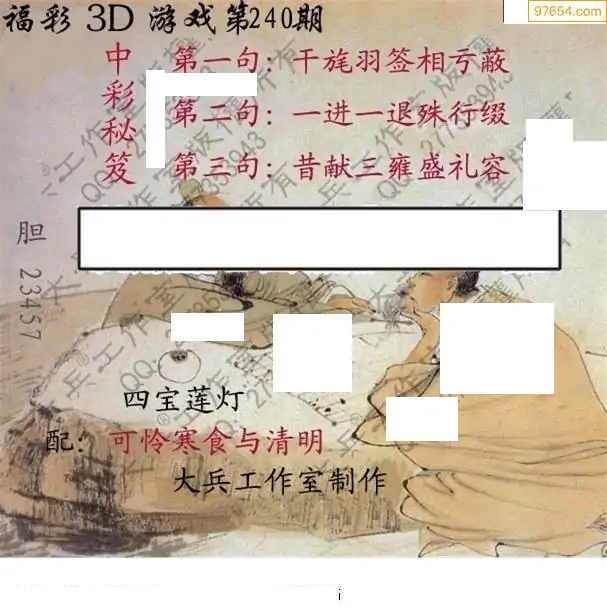 97654.com
福彩 3D 游戏第240期
中彩秘笈
第一句：干旄羽签相亏蔽
第二句：一进一退殊行缀
第三句：昔献三雍盛礼容
胆 23457
四宝莲灯
配：可怜寒食与清明
大兵工作室制作
i